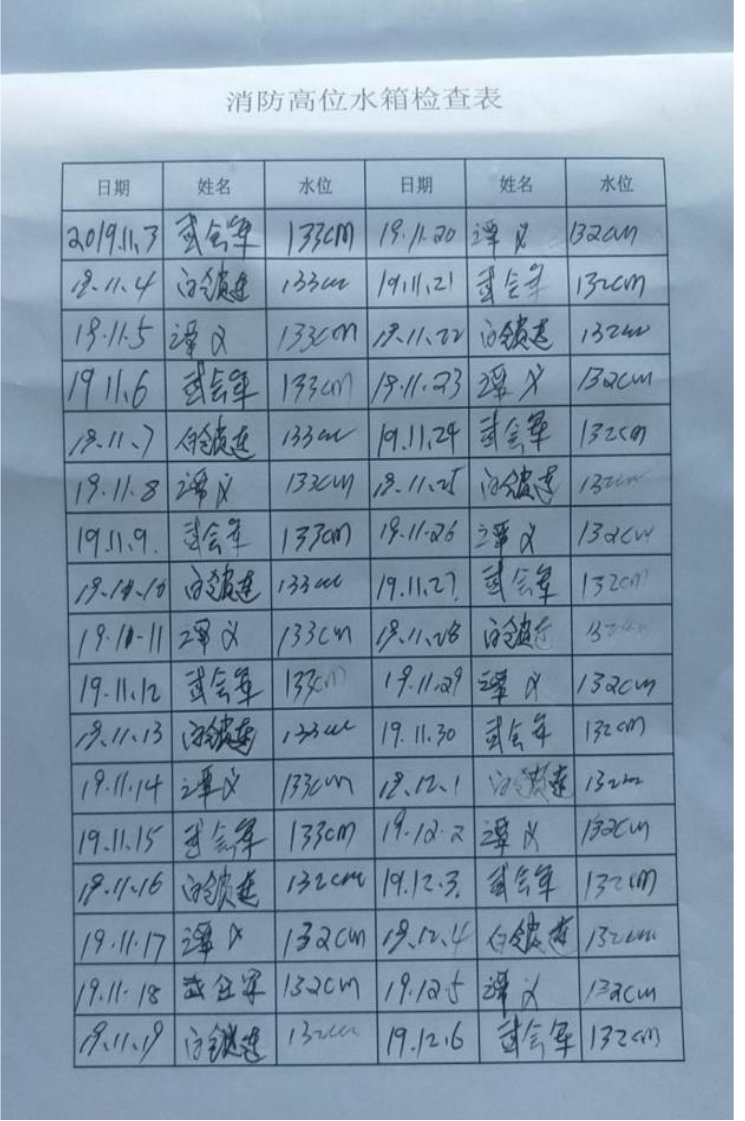 消防高位水箱检查表
日期 姓名 水位 日期 姓名 水位
2019.11.3 武会军 133cm 19.11.20 谭义 132cm
19.11.4 白锁连 133cm 19.11.21 武会军 132cm
19.11.5 谭义 133cm 19.11.22 白锁连 132cm
19.11.6 武会军 133cm 19.11.23 谭义 132cm
19.11.7 白锁连 133cm 19.11.24 武会军 132cm
19.11.8 谭义 133cm 19.11.25 白锁连 132cm
19.11.9. 武会军 133cm 19.11.26 谭义 132cm
19.11.10 白锁连 133cm 19.11.27. 武会军 132cm
19.11.11 谭义 133cm 19.11.28 白锁连 132cm
19.11.12 武会军 133cm 19.11.29 谭义 132cm
19.11.13 白锁连 133cm 19.11.30 武会军 132cm
19.11.14 谭义 133cm 19.12.1 白锁连 132cm
19.11.15 武会军 133cm 19.12.2 谭义 132cm
19.11.16 白锁连 132cm 19.12.3. 武会军 132cm
19.11.17 谭义 132cm 19.12.4 白锁连 132cm
19.11.18 武会军 132cm 19.12.5 谭义 132cm
19.11.19 白锁连 132cm 19.12.6 武会军 132cm